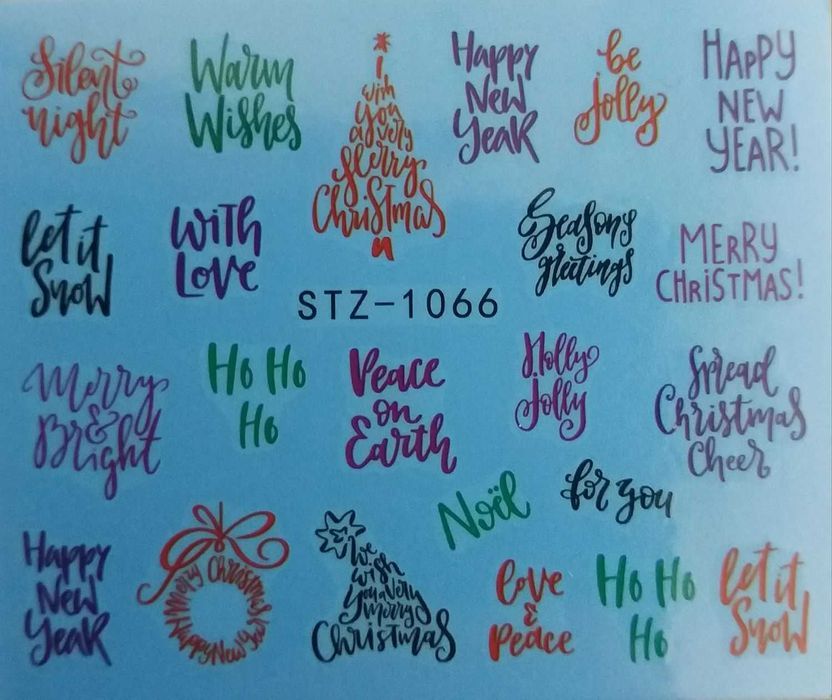 Silent
night
Warm
Wishes
I
wish
you
a very
Merry
Christmas
Happy
New
Year
be
jolly
HAPPY
NEW
YEAR!
let it
Snow
with
Love
Seasons
greetings
MERRY
CHRISTMAS!
STZ-1066
Merry
&
Bright
Ho Ho
Ho
Peace
on
Earth
Holly
Jolly
Spread
Christmas
Cheer
Noël
for you
Happy
New
Year
Merry Christmas
Happy New Year
We
wish
you a very
merry
Christmas
love
&
peace
Ho Ho
Ho
let it
Snow